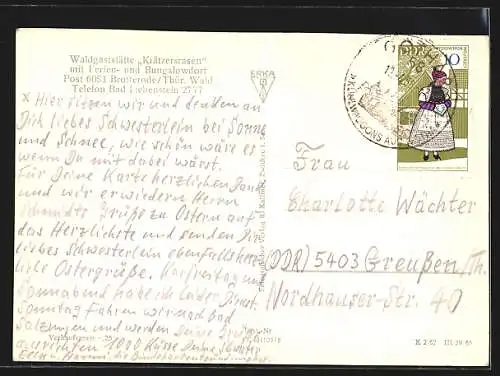 Waldgaststätte „Klätzersrasen"
mit Ferien- und Bungalowdorf
Post 6083 Brotterode/Thür. Wald
Telefon Bad Liebenstein 2777
ERKA
DDR
10
x Hier sitzen wir und denken an
Dich liebes Schwesterlein bei Sonne
und Schnee, wie schön wäre es
wenn Du mit dabei wärst.
Für Deine Karte herzlichen Dank
und wir erwiedern Herrn
Schmidts Grüße zu Ostern auf
das Herzlichste und senden Dir
liebes Schwesterlein ebenfalls herz-
liche Ostergrüße. Karfreitag und
Sonnabend habe ich leider Dienst.
Sonntag fahren wir nach Bad
Salzungen und werden Deine Grüße
ausrichten 1000 Küsse Deine Schwester
Frau
Charlotte Wächter
(DDR) 5403 Greußen/Th.
Nordhauser-Str. 40